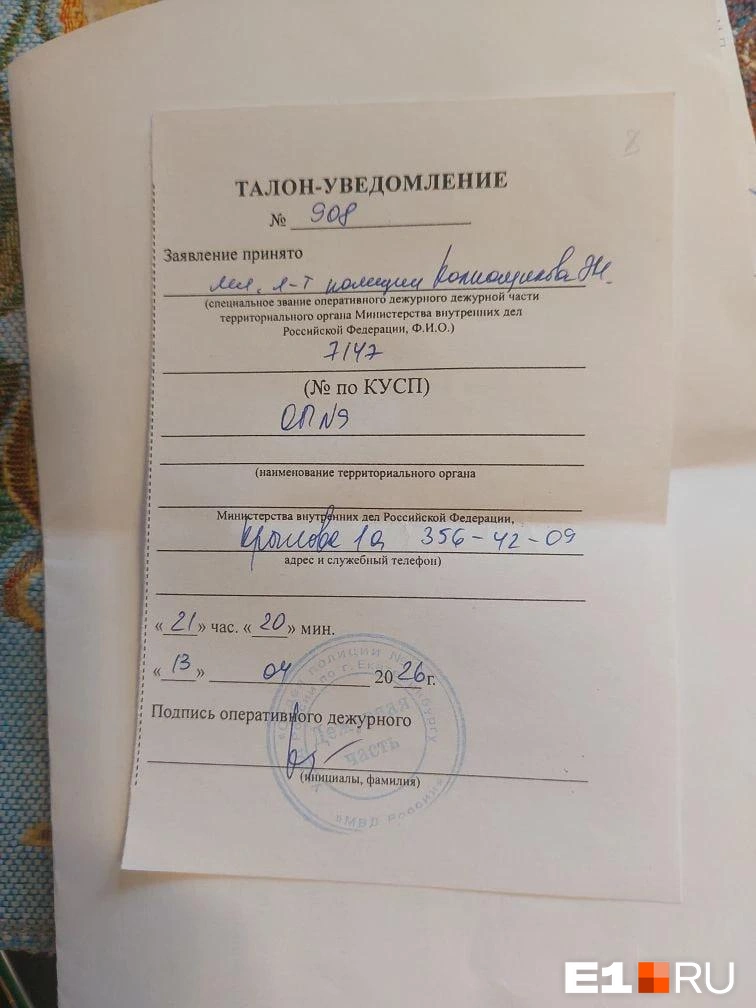 ТАЛОН-УВЕДОМЛЕНИЕ
№ 908
Заявление принято
мл. л-т полиции
(специальное звание оперативного дежурного дежурной части
территориального органа Министерства внутренних дел
Российской Федерации, Ф.И.О.)
7147
(№ по КУСП)
ОП №9
(наименование территориального органа
Министерства внутренних дел Российской Федерации,
Крылова 1а 356-42-09
адрес и служебный телефон)
« 21 » час. « 20 » мин.
« 13 » 04 2026г.
Подпись оперативного дежурного
(инициалы, фамилия)
Дежурная
часть
МВД России
E1.RU